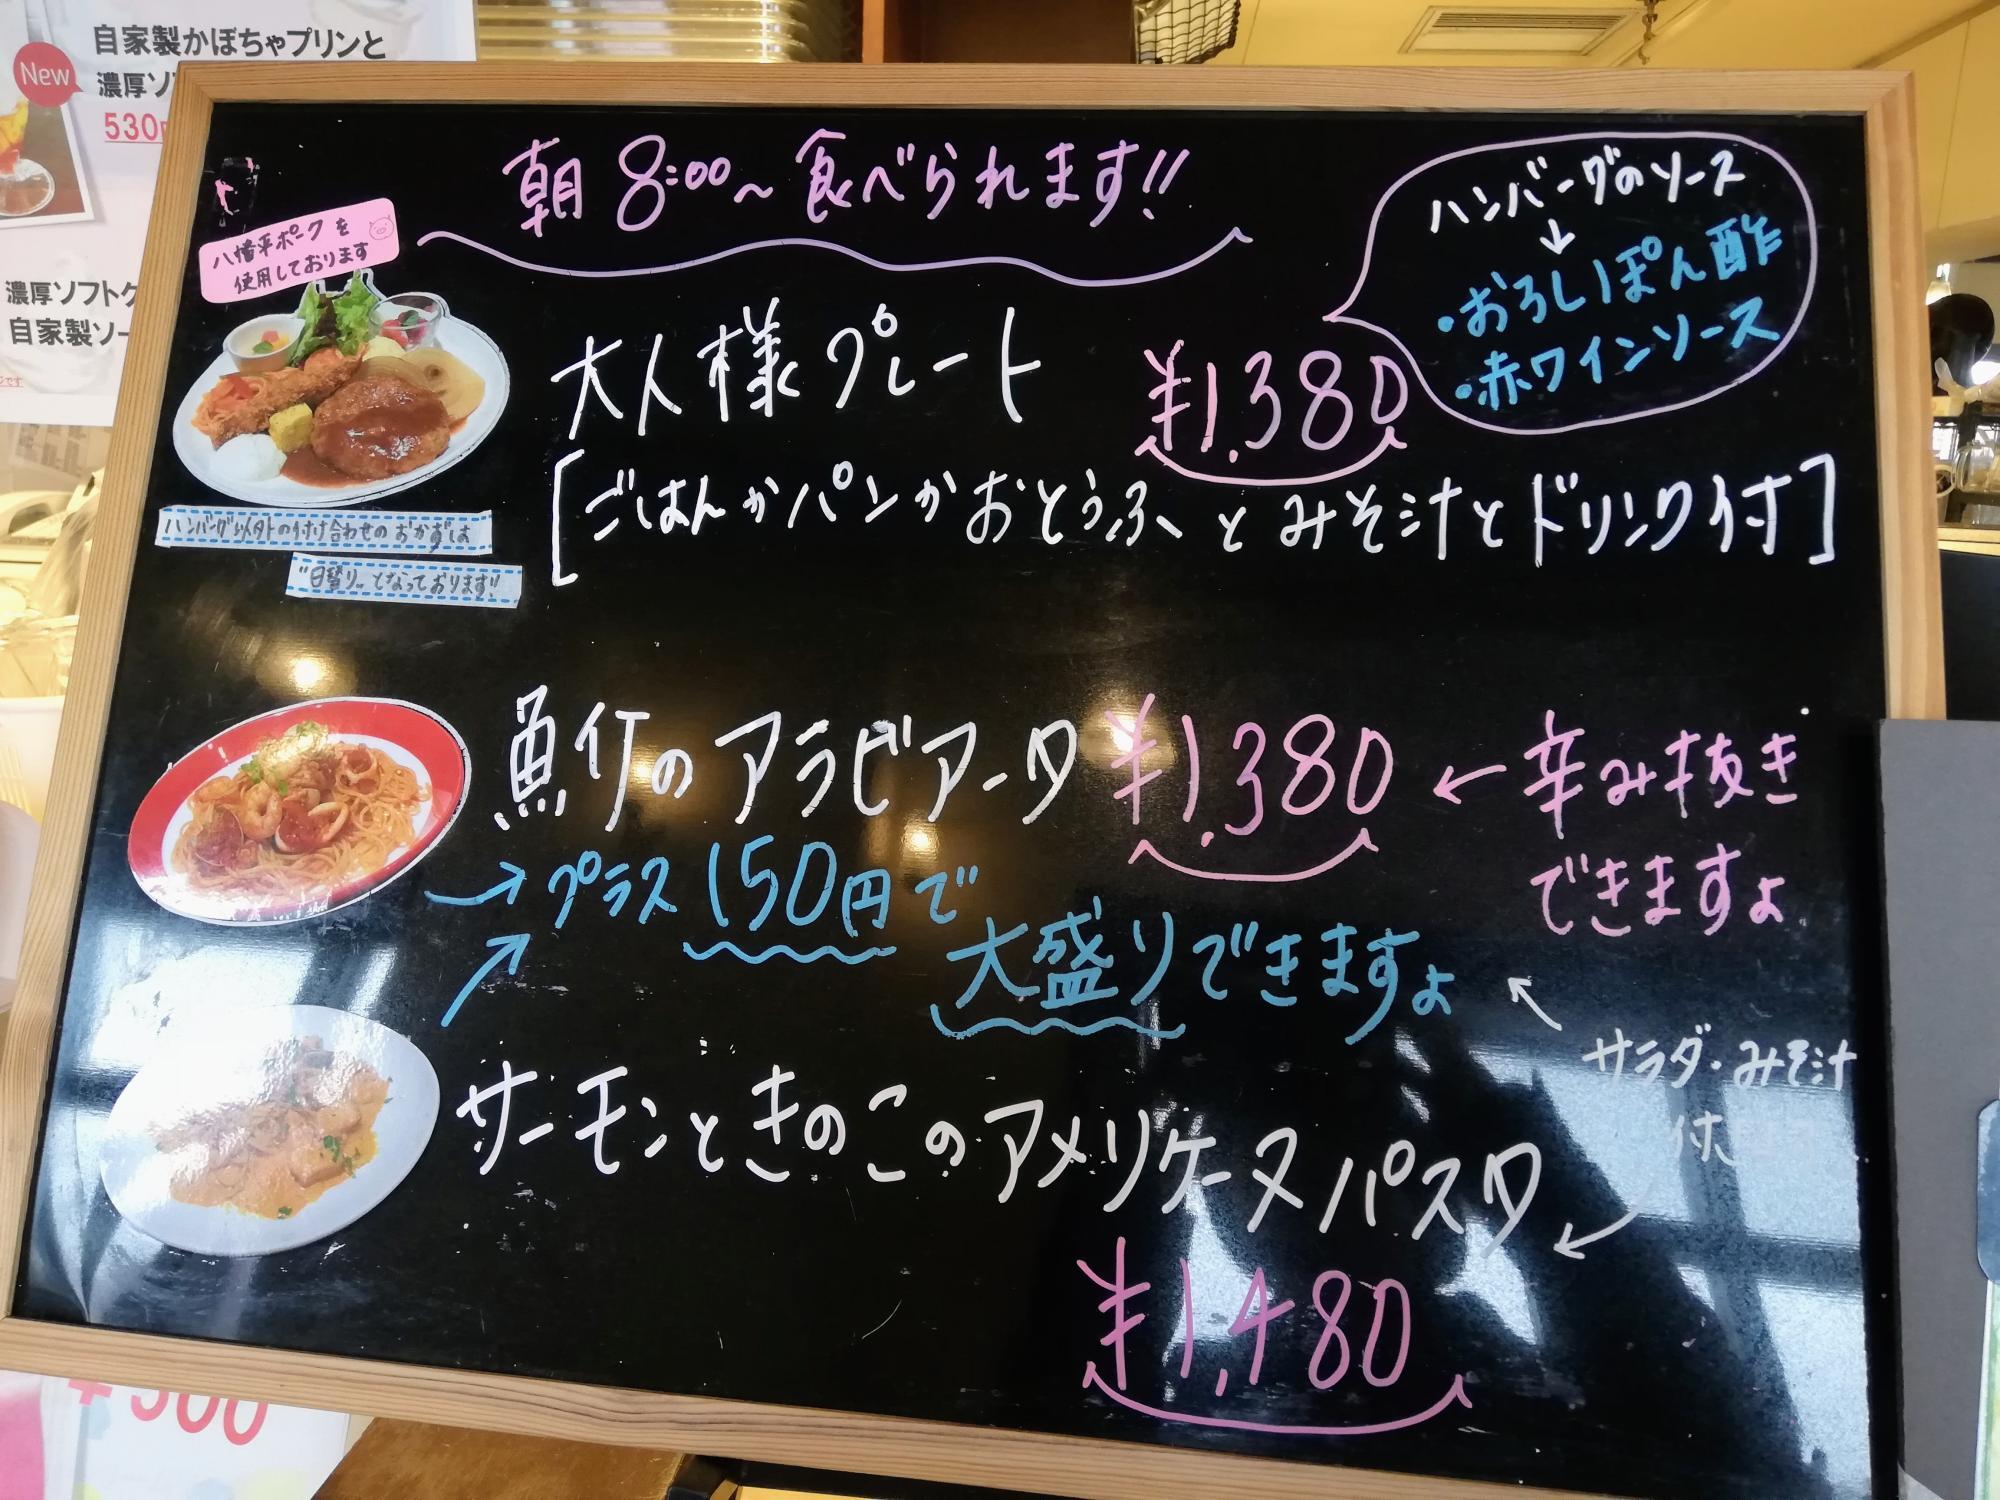 自家製かぼちゃプリンと
New
濃厚ソフ
530円
濃厚ソフトク
自家製ソー
朝 8:00～食べられます!!
八幡平ポークを
使用しております
ハンバーグのソース
↓
・おろしぽん酢
・赤ワインソース
大人様プレート ¥1,380
[ごはんかパンかおとうふとみそ汁とドリンク付]
ハンバーグ以外の付け合わせのおかずは
"日替り"となっております!!
魚介のアラビアータ ¥1,380 ← 辛み抜き
できますよ
→ プラス150円で
大盛りできますよ
サラダ・みそ汁
付
サーモンときのこのアメリケーヌパスタ
¥1,480
¥500